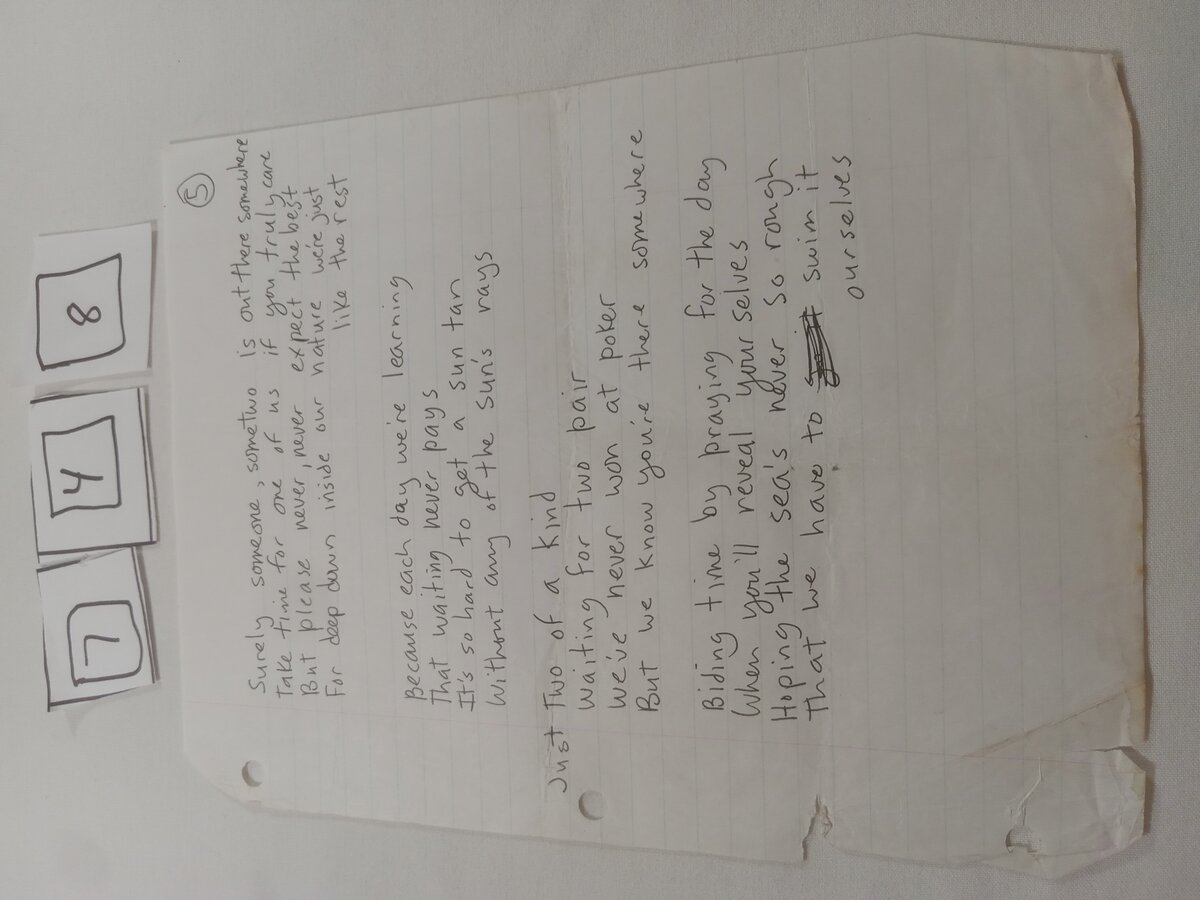 7 4 8
5
Surely someone, sometwo is out there somewhere
Take time for one of us if you truly care
But please never, never expect the best
For deep down inside our nature we're just
like the rest
Because each day we're learning
That waiting never pays
It's so hard to get a sun tan
Without any of the sun's rays
Just Two of a kind
Waiting for two pair
We've never won at poker
But we know you're there somewhere
Biding time by praying for the day
When you'll reveal your selves
Hoping the sea's never so rough
That we have to swim it
ourselves